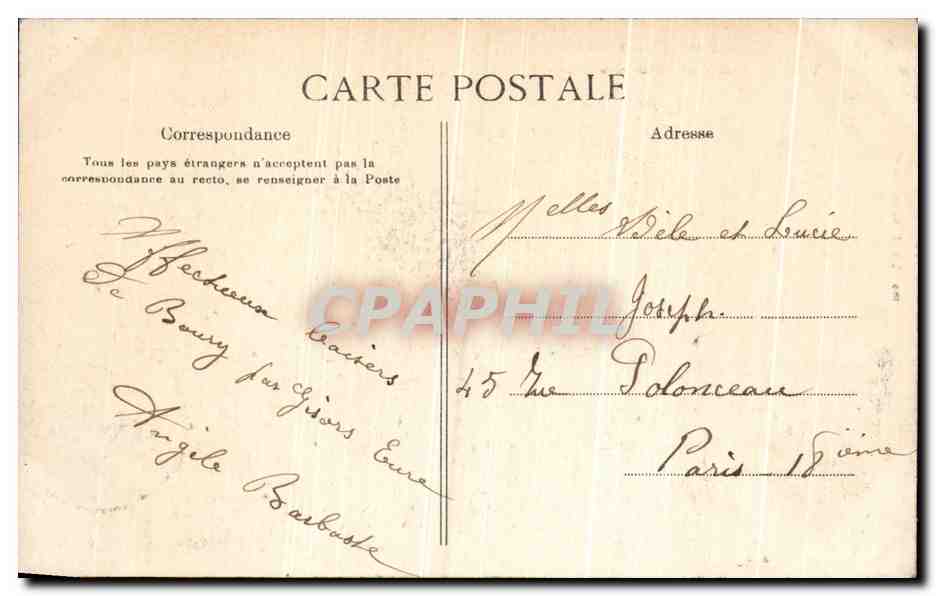 CARTE POSTALE
Correspondance
Tous les pays étrangers n'acceptent pas la
correspondance au recto, se renseigner à la Poste
Affectueux baisers
de Boury par Gisors Eure
Angèle Barbaste
Adresse
Melles Adèle et Lucie
Joseph.
45 Rue Polonceau
Paris 18ième
CPAPHIL